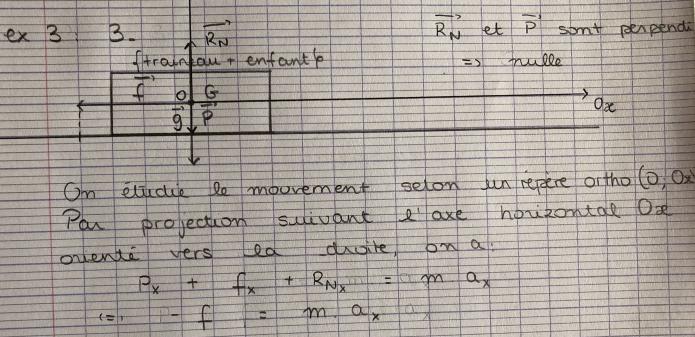 ex 3 : 3. R_N
R_N et P sont perpendi
{traineau + enfant}
=> nulle
f O G
g P
Ox
On étudie le mouvement selon un repère ortho (O, Ox)
Par projection suivant l'axe horizontal Ox
orienté vers la droite, on a :
P_x + f_x + R_Nx = m. a_x
<=> - f = m. a_x